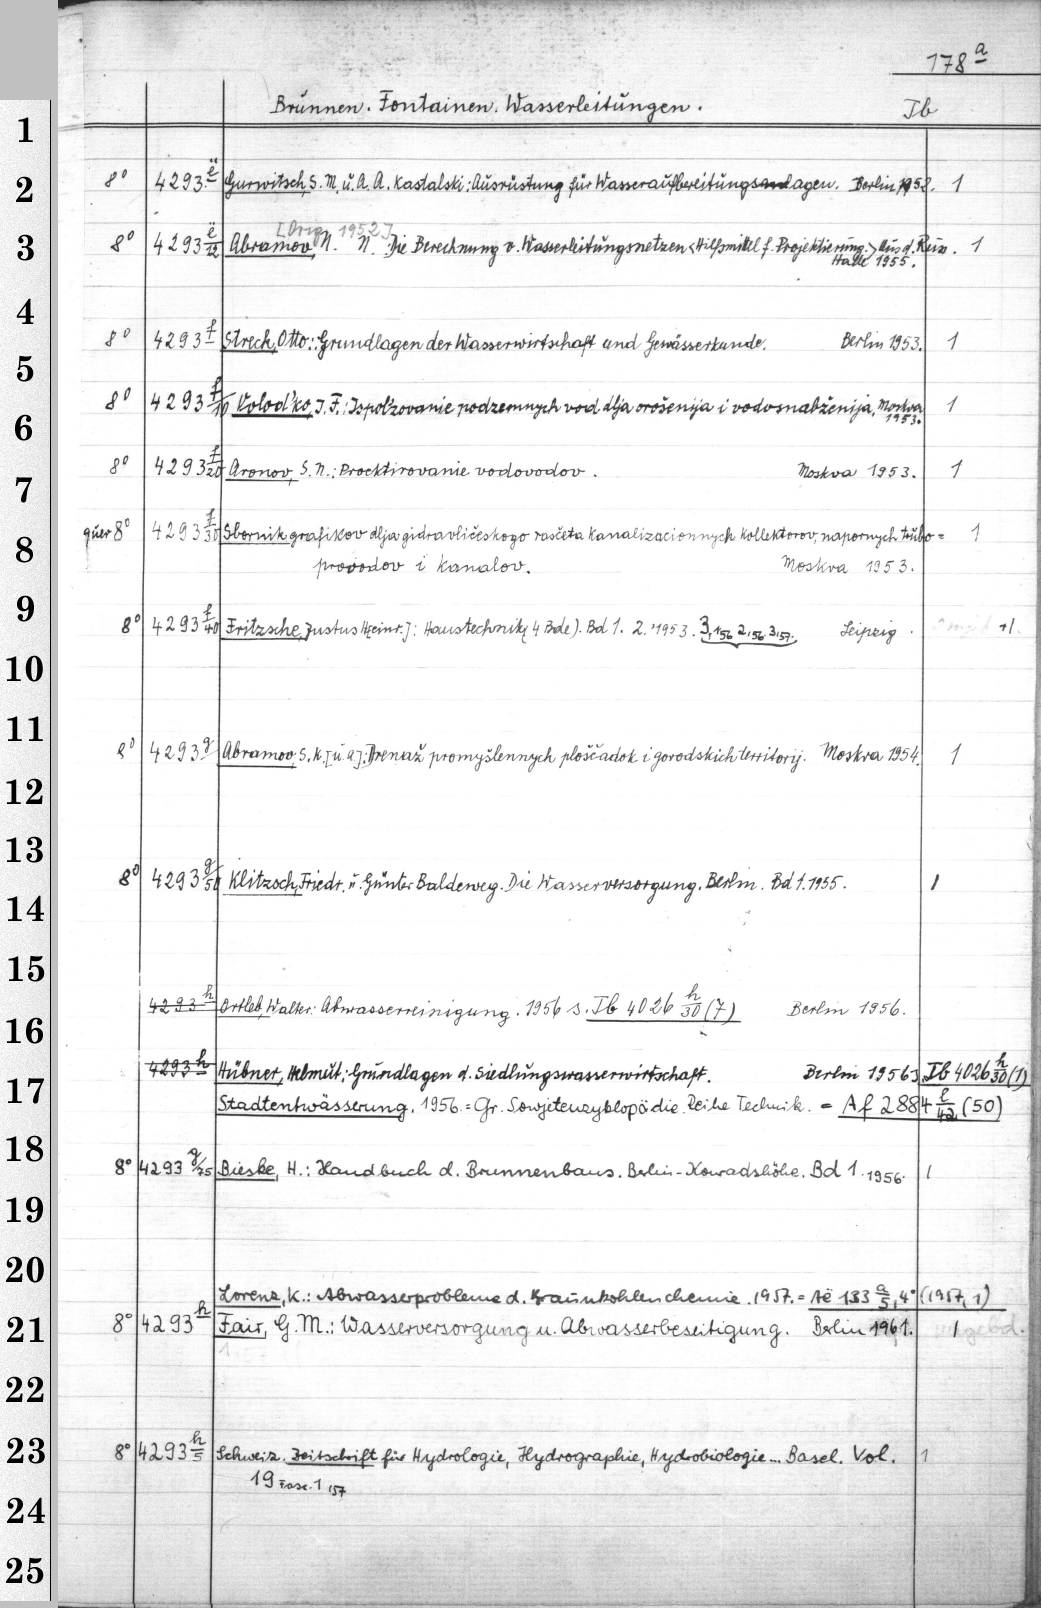 178 a
Brunnen. Fontainen. Wasserleitungen. Ib
1
2 8° 4293 ë Gurwitsch, S. M. u. A. A. Kastalski: Ausrüstung für Wasseraufbereitungsanlagen. Berlin 1958. 1
[Orig. 1952]
3 8° 4293 ë/12 Abramov, N. N.: Die Berechnung v. Wasserleitungsnetzen <Hilfsmittel f. Projektierung.> Aus d. Russ. 1
Halle 1955.
4 8° 4293 f Strech, Otto: Grundlagen der Wasserwirtschaft und Gewässerkunde. Berlin 1953. 1
5
8° 4293 f/10 Volod'ko, I. F.: Ispol'zovanie podzemnych vod dlja orošenija i vodosnabženija, Moskva 1
6 1953.
8° 4293 f/20 Aronov, S. N.: Proektirovanie vodovodov. Moskva 1953. 1
7
quer 8° 4293 f/30 Sbornik grafikov dlja gidravličeskogo rasčeta kanalizacionnych kollektorov, napornych trubo= 1
8 provodov i kanalov. Moskva 1953.
9 8° 4293 f/40 Fritzsche, Justus H[einr.]: Haustechnik (4 Bde). Bd 1. 2. 1953. 3, 1,56 2,56 3,57. Leipzig. 1.
10
11 8° 4293 g Abramov, S. K. [u. a.]: Drenaž promyšlennych ploščadok i gorodskich territorij. Moskva 1954. 1
12
13 8° 4293 g/50 Klitzsch, Friedr. u. Günter Baldeweg. Die Wasserversorgung. Berlin. Bd 1. 1955. 1
14
15
16 4293 h Ortleb, Walter: Abwasserreinigung. 1956 s. Ib 4026 h/30 (7) Berlin 1956.
4293 h Hübner, Helmut: Grundlagen d. Siedlungswasserwirtschaft. Berlin 1956 s. Ib 4026 h/30 (1)
17 Stadtentwässerung. 1956. = Gr. Sowjetenzyklopädie. Reihe Technik. = Af 2884 l/42 (50)
18 8° 4293 g/75 Bieske, H.: Handbuch d. Brunnenbaus. Berlin-Konradshöhe. Bd 1. 1956. 1
19
20 Lorenz, K.: Abwasserprobleme d. Braunkohlenchemie. 1957. = Aë 133 a/5, 4° (1957, 1)
21 8° 4293 h Fair, G. M.: Wasserversorgung u. Abwasserbeseitigung. Berlin 1961. 1
22
23 8° 4293 h/5 Schweiz. Zeitschrift für Hydrologie, Hydrographie, Hydrobiologie... Basel. Vol. 1
19 Fasc. 1 ,57
24
25